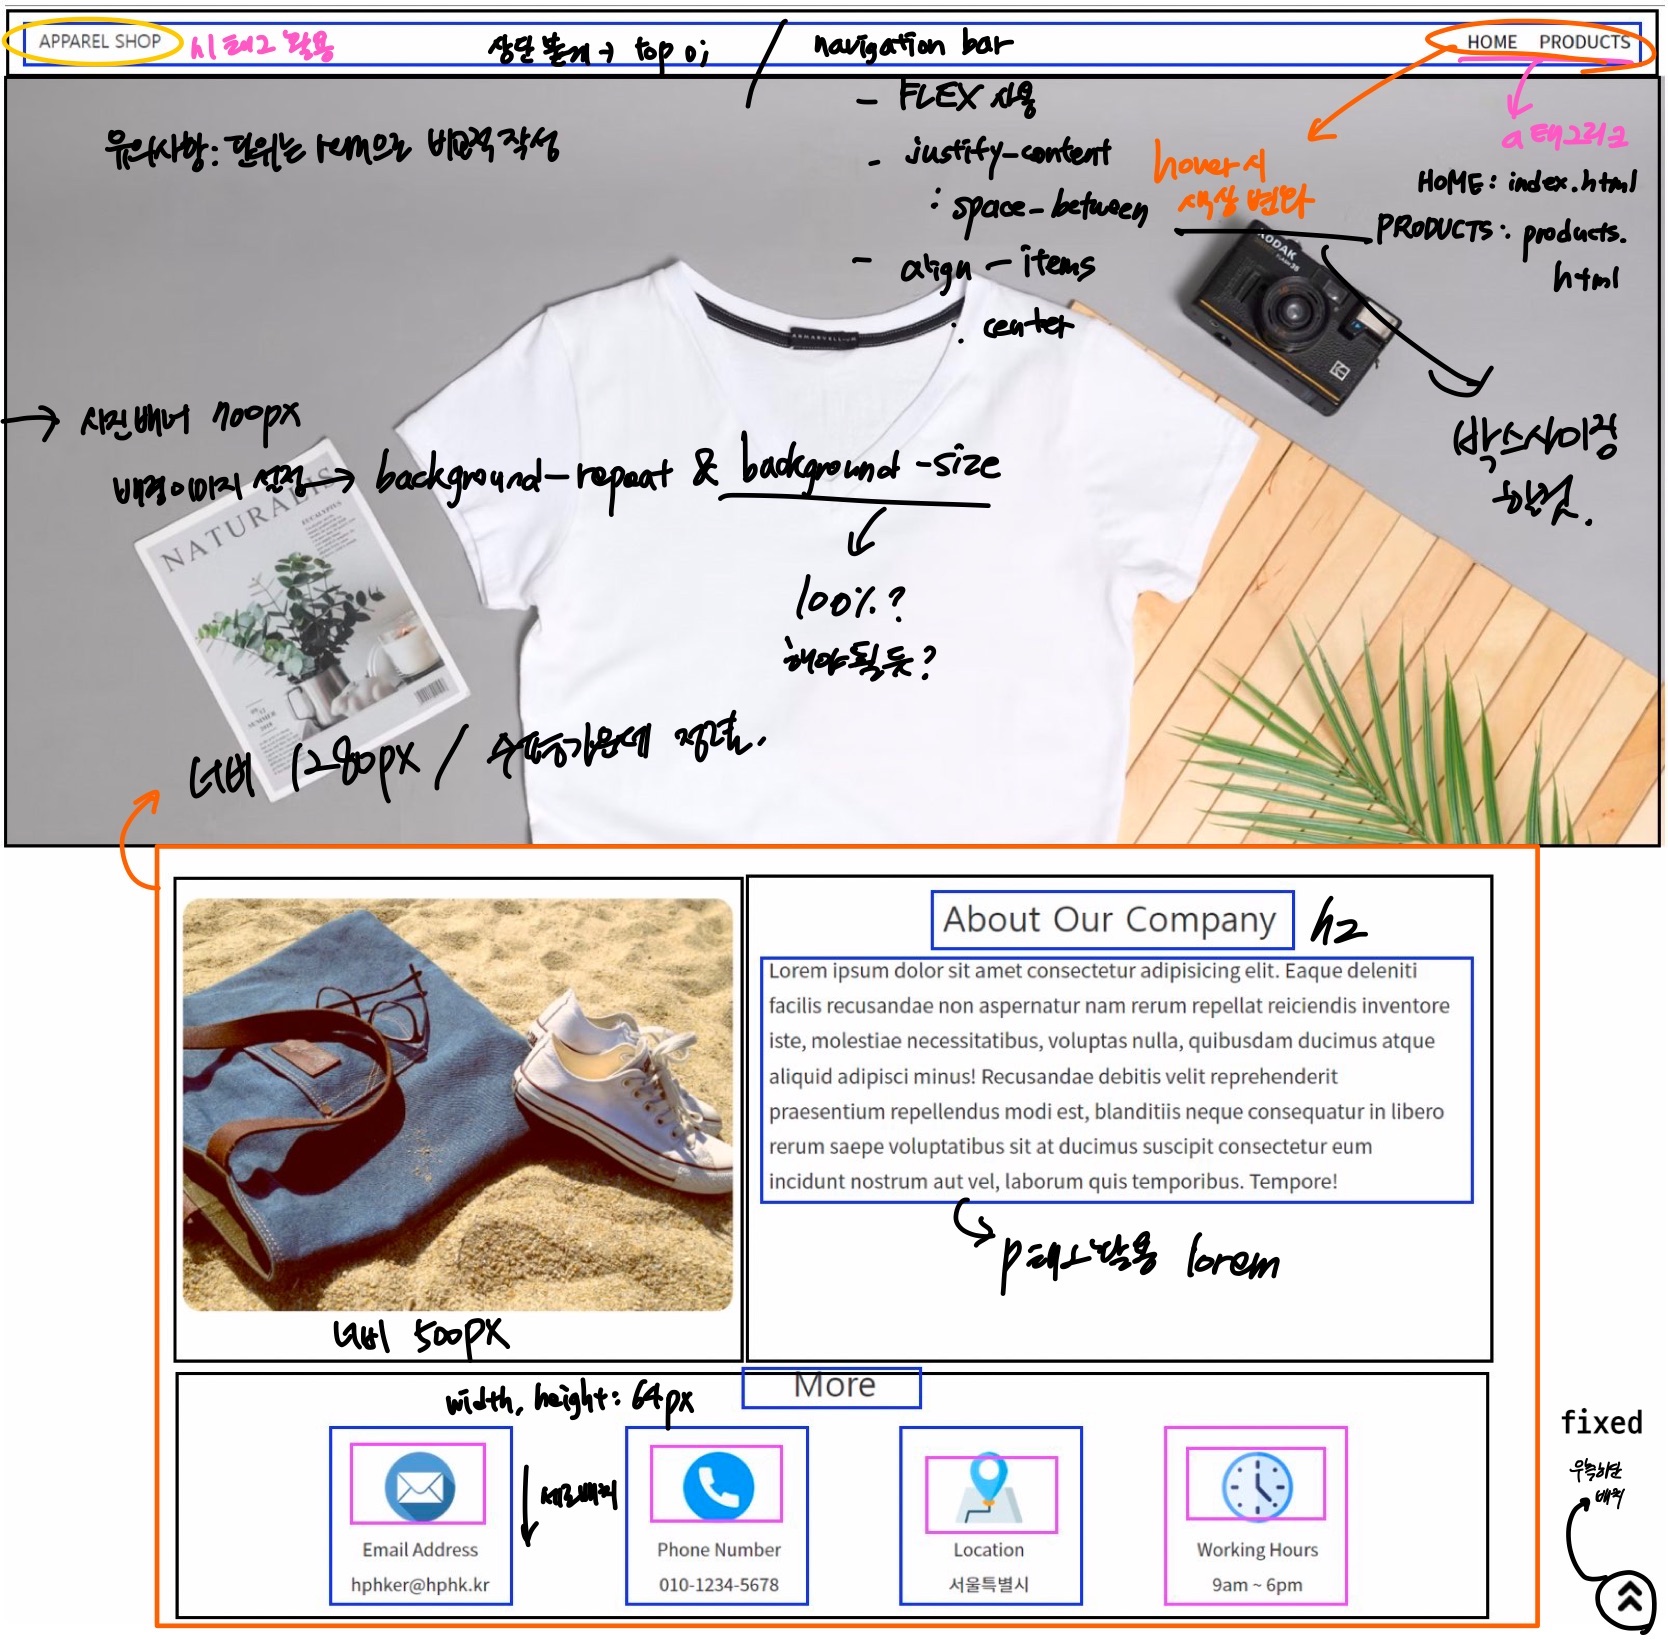 APPAREL SHOP
시태그 활용
상단 붙게 → top 0;
navigation bar
HOME PRODUCTS
- FLEX 사용
- justify-content
: space-between
- align-items
: center
유의사항: 단위는 rem으로 비교적 작성
hover시
색상 변화
a태그링크
HOME: index.html
PRODUCTS: products.
html
박스사이징
할것.
KODAK
→ 사진배너 700px
배경이미지 설정 → background-repeat & background-size
100%?
해야될듯?
NATURALIS
너비 1280px / 수평가운데 정렬.
About Our Company
h2
Lorem ipsum dolor sit amet consectetur adipisicing elit. Eaque deleniti
facilis recusandae non aspernatur nam rerum repellat reiciendis inventore
iste, molestiae necessitatibus, voluptas nulla, quibusdam ducimus atque
aliquid adipisci minus! Recusandae debitis velit reprehenderit
praesentium repellendus modi est, blanditiis neque consequatur in libero
rerum saepe voluptatibus sit at ducimus suscipit consectetur eum
incidunt nostrum aut vel, laborum quis temporibus. Tempore!
p태그활용 lorem
너비 500px
More
width, height: 64px
세로배치
Email Address
hphker@hphk.kr
Phone Number
010-1234-5678
Location
서울특별시
Working Hours
9am ~ 6pm
fixed
우측하단
배치